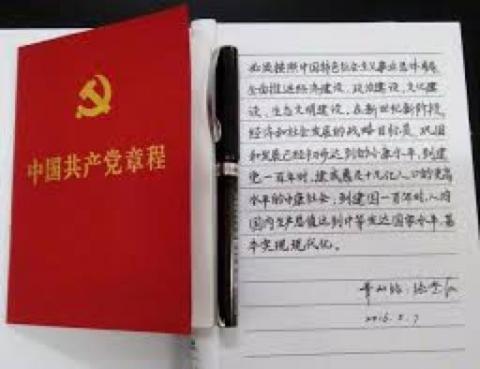 中国共产党章程
必须按照中国特色社会主义事业总体布局
全面推进经济建设、政治建设、文化建
设、生态文明建设。在新世纪新阶段,
经济和社会发展的战略目标是,巩固
和发展已经初步达到的小康水平,到建
党一百年时,建成惠及十几亿人口的更高
水平的小康社会,到建国一百年时,人均
国内生产总值达到中等发达国家水平,基
本实现现代化。
2016.5.7